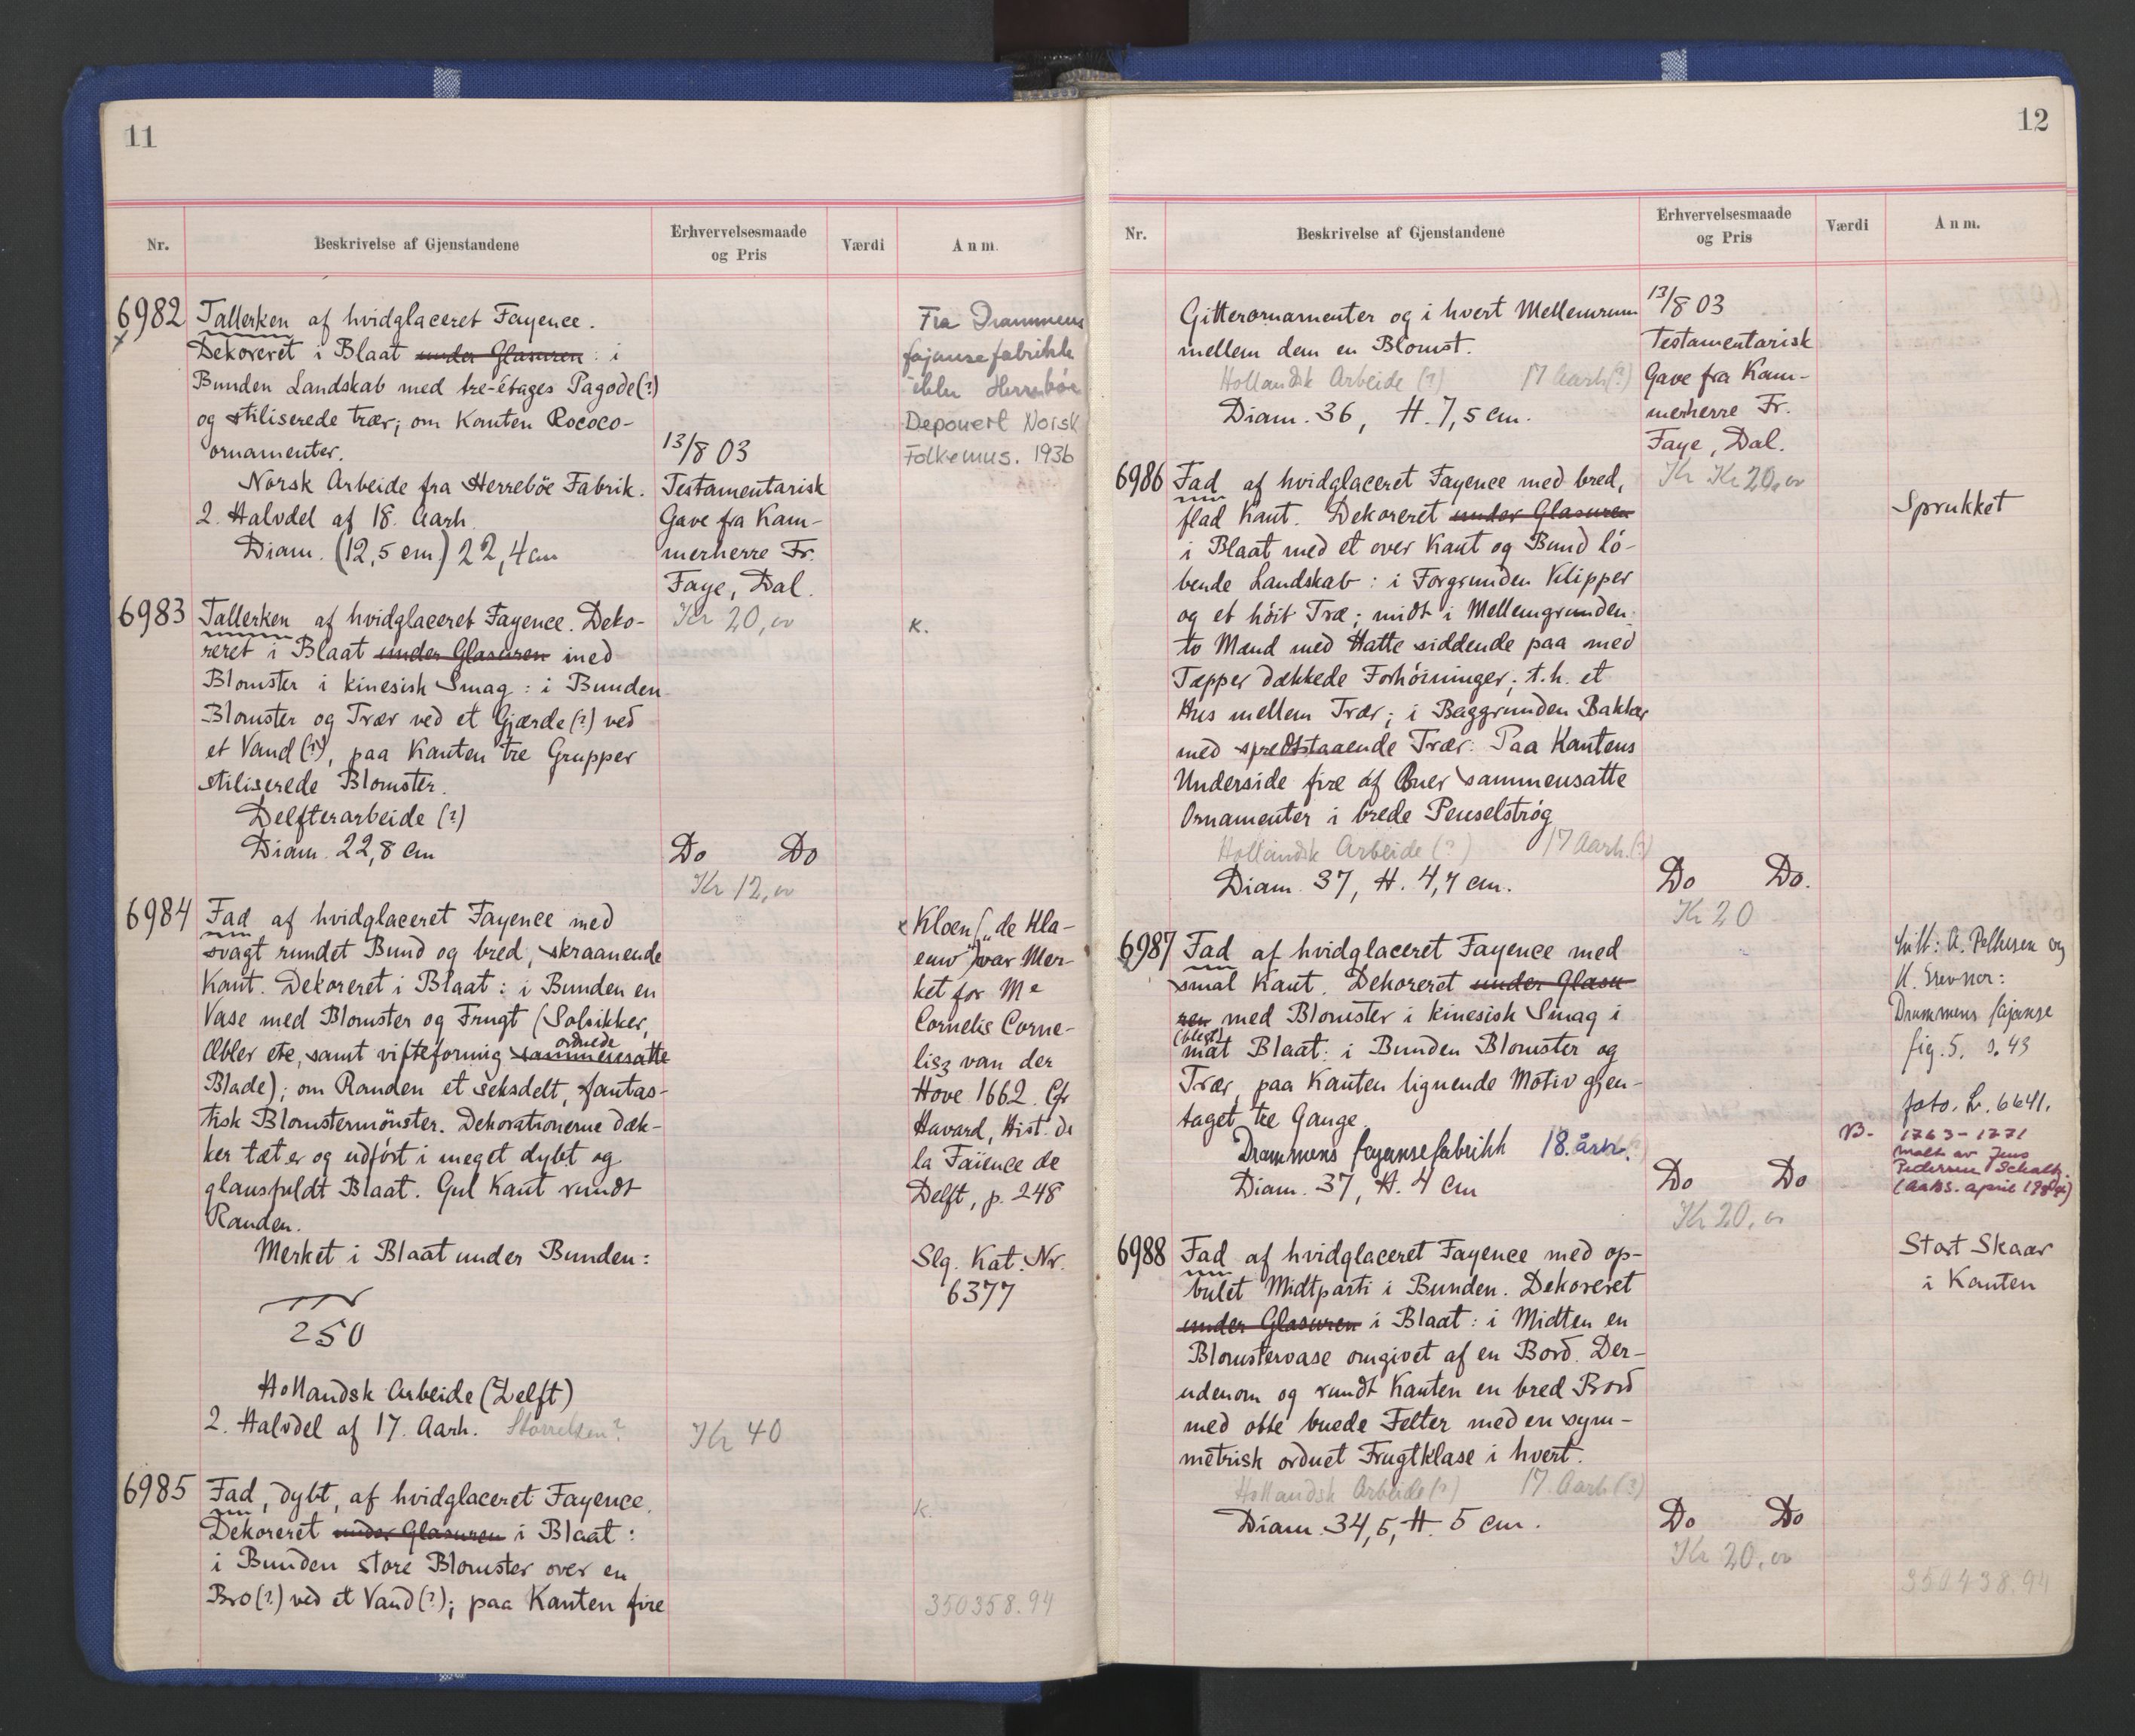 11
Nr.
Beskrivelse af Gjenstandene
Erhvervelsesmaade
og Pris
Værdi
Anm.
6982
Tallerken af hvidglaceret Fayence.
Dekoreret i Blaat under Glasuren : i
Bunden Landskab med tre-étages Pagode(?)
og stiliserede trær; om Kanten Rococo-
ornamenter.
Norsk Arbeide fra Herrebøe Fabrik.
2. Halvdel af 18. Aarh.
Diam. (12,5 cm) 22,4 cm
13/8 03
Testamentarisk
Gave fra Kam-
merherre Fr.
Faye, Dal.
Kr 20,00
Fra Drammens
fajansefabrikk
ikke Herrebøe
Deponert Norsk
Folkemus. 1936
6983
Tallerken af hvidglaceret Fayence. Deko-
reret i Blaat under Glasuren med
Blomster i kinesisk Smag : i Bunden
Blomster og Trær ved et Gjærde(?) ved
et Vand(?), paa Kanten tre Grupper
stiliserede Blomster.
Delfterarbeide (?)
Diam. 22,8 cm
Do Do
Kr 12,00
K.
6984
Fad af hvidglaceret Fayence med
svagt rundet Bund og bred, skraanende
Kant. Dekoreret i Blaat : i Bunden en
Vase med Blomster og Frugt (Solsikker,
Æbler etc, samt vifteformig sammensatte
ordnede
Blade); om Randen et seksdelt, fantas-
tisk Blomstermønster. Dekorationerne dæk-
ker tæt er og udført i meget dybt og
glansfuldt Blaat. Gul Kant rundt
Randen.
Merket i Blaat under Bunden:
250
Hollandsk Arbeide (Delft)
2. Halvdel af 17. Aarh. Størrelsen?
Kr 40
Kloen („de Kla-
euw") var Mer-
ket for Me
Cornelis Corne-
lisz van der
Hove 1662. Cfr
Havard, Hist. de
la Faïence de
Delft, p. 248
Slg. Kat. Nr.
6377
6985
Fad, dybt, af hvidglaceret Fayence.
Dekoreret under Glasuren i Blaat :
i Bunden store Blomster over en
Bro(?) ved et Vand(?); paa Kanten fire
K.
350358.94
12
Nr.
Beskrivelse af Gjenstandene
Erhvervelsesmaade
og Pris
Værdi
Anm.
Gitterornamenter og i hvert Mellemrum
mellem dem en Blomst.
Hollandsk Arbeide (?) 17 Aarh(?)
Diam. 36, H. 7,5 cm.
13/8 03
Testamentarisk
Gave fra Kam-
merherre Fr.
Faye, Dal.
Kr Kr 20,00
6986
Fad af hvidglaceret Fayence med bred,
flad Kant. Dekoreret under Glasuren
i Blaat med et over Kant og Bund lø-
bende Landskab : i Forgrunden Klipper
og et høit Træ; midt i Mellemgrunden
to Mænd med Hatte siddende paa med
Tæpper dækkede Forhøininger; t.h. et
Hus mellem Trær; i Baggrunden Bakker
med spredtstaaende Trær. Paa Kantens
Underside fire af Buer sammensatte
Ornamenter i brede Penselstrøg
Hollandsk Arbeide (?) 17 Aarh.(?)
Diam. 37, H. 4,7 cm.
Do Do.
Kr 20
Sprukket
6987
Fad af hvidglaceret Fayence med
smal Kant. Dekoreret under Glasu-
ren med Blomster i kinesisk Smag i
(blegt)
mat Blaat : i Bunden Blomster og
Trær, paa Kanten lignende Motiv gjen-
taget tre Gange
Drammens fayansefabrikk 18. årh.
Diam. 37, H. 4 cm
Do Do
Kr 20,00
Litt: A. Polhesen og
Drammens fajanse
fig. 5. s. 43
foto. L. 6641.
B.
1763-1771
malt av Jens
Pedersen
6988
Fad af hvidglaceret Fayence med op-
bulet Midtparti i Bunden. Dekoreret
under Glasuren i Blaat : i Midten en
Blomstervase omgivet af en Bord. Der-
udenom og rundt Kanten en bred Bord
med otte buede Felter med en sym-
metrisk ordnet Frugtklase i hvert.
Hollandsk Arbeide (?) 17 Aarh (?)
Diam. 34,5, H. 5 cm.
Do Do
Kr 20,00
Stort Skaar
i Kanten
350438.94